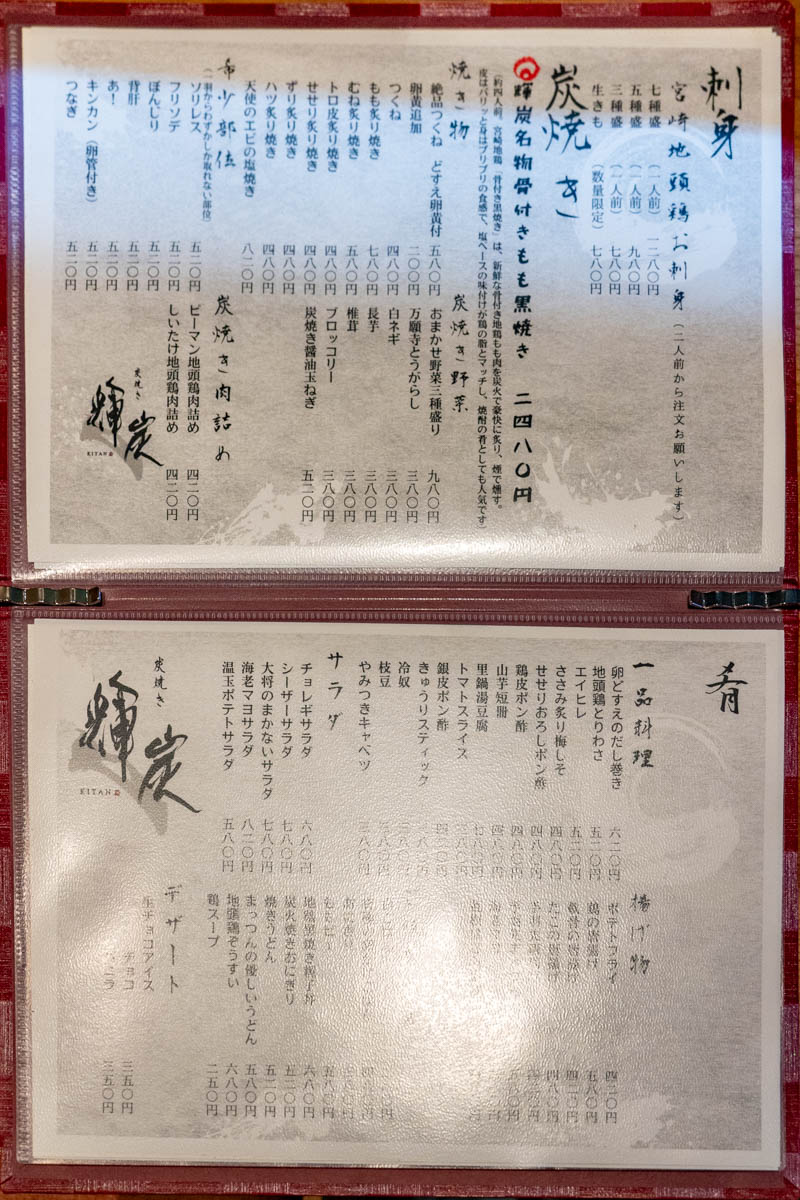 刺身
宮崎地頭鶏お刺身（二人前から注文お願いします）
七種盛（一人前）一二八〇円
五種盛（一人前）九八〇円
三種盛（一人前）七八〇円
生きも（数量限定）七八〇円
炭焼き
輝炭名物骨付きもも黒焼き 二四八〇円
（約四人前、宮崎地鶏「骨付き黒焼き」は、新鮮な骨付き地鶏もも肉を炭火で豪快に炙り、煙で燻す。
皮はパリッと身はプリプリの食感で、塩ベースの味付けが鶏の脂とマッチし、焼酎の肴としても人気です）
焼き物
絶品つくね どすえ卵黄付 五八〇円
卵黄追加 二〇〇円
つくね 四八〇円
もも炙り焼き 七八〇円
むね炙り焼き 五八〇円
トロ皮炙り焼き 四八〇円
せせり炙り焼き 四八〇円
ずり炙り焼き 四八〇円
ハツ炙り焼き 四八〇円
天使のエビの塩焼き 八二〇円
希少部位
（一羽からわずかしか取れない部位）
ソリレス 五二〇円
フリソデ 五二〇円
ぼんじり 五二〇円
背肝 五二〇円
あ！ 五二〇円
キンカン（卵管付き） 五二〇円
つなぎ 五二〇円
炭焼き野菜
おまかせ野菜三種盛り 九八〇円
万願寺とうがらし 三八〇円
白ネギ 三八〇円
長芋 三八〇円
椎茸 三八〇円
ブロッコリー 三八〇円
炭焼き醤油玉ねぎ 五二〇円
炭焼き肉詰め
ピーマン地頭鶏肉詰め 四二〇円
しいたけ地頭鶏肉詰め 四二〇円
炭焼き
輝炭
KITAN
肴
一品料理
卵どすえのだし巻き 六二〇円
地頭鶏とりわさ 五二〇円
エイヒレ 五二〇円
ささみ炙り梅しそ 四八〇円
せせりおろしポン酢 四八〇円
鶏皮ポン酢 四八〇円
山芋短冊
里鍋湯豆腐
トマトスライス 三八〇円
銀皮ポン酢
きゅうりスティック
冷奴
枝豆 三八〇円
やみつきキャベツ 三八〇円
サラダ
チョレギサラダ 六八〇円
シーザーサラダ 七八〇円
大将のまかないサラダ 七八〇円
海老マヨサラダ 八二〇円
温玉ポテトサラダ 五八〇円
揚げ物
ポテトフライ 四二〇円
鶏の唐揚げ 五八〇円
地鶏黒焼き親子丼 六八〇円
炭火焼きおにぎり 五二〇円
焼きうどん 五二〇円
まっつんの優しいうどん 五八〇円
地頭鶏ぞうすい 六八〇円
鶏スープ 二五〇円
デザート
生チョコアイス
チョコ 三五〇円
バニラ 三五〇円
炭焼き
輝炭
KITAN